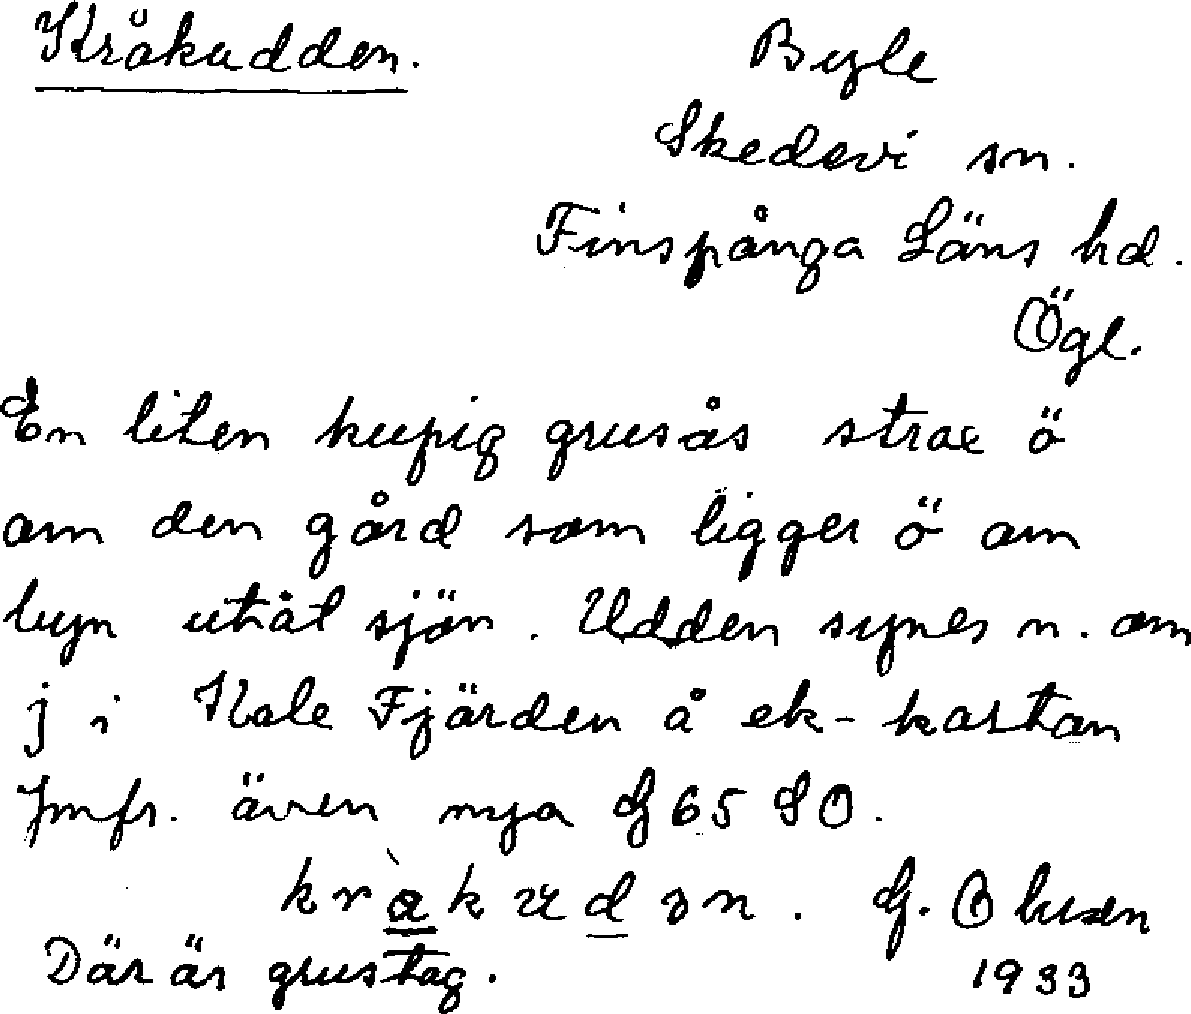 Kråkudden.
Byle
Skedevi sn.
Finspånga Läns hd.
Ögl.
En liten kupig grusås strax ö
om den gård som ligger ö om
byn utåt sjön. Udden synes n. om
j i Kale Fjärden å ek-kartan
Jmfr. även nya G 65 SO.
kràkudən. G. Obuxen
Där är grustag.
1933